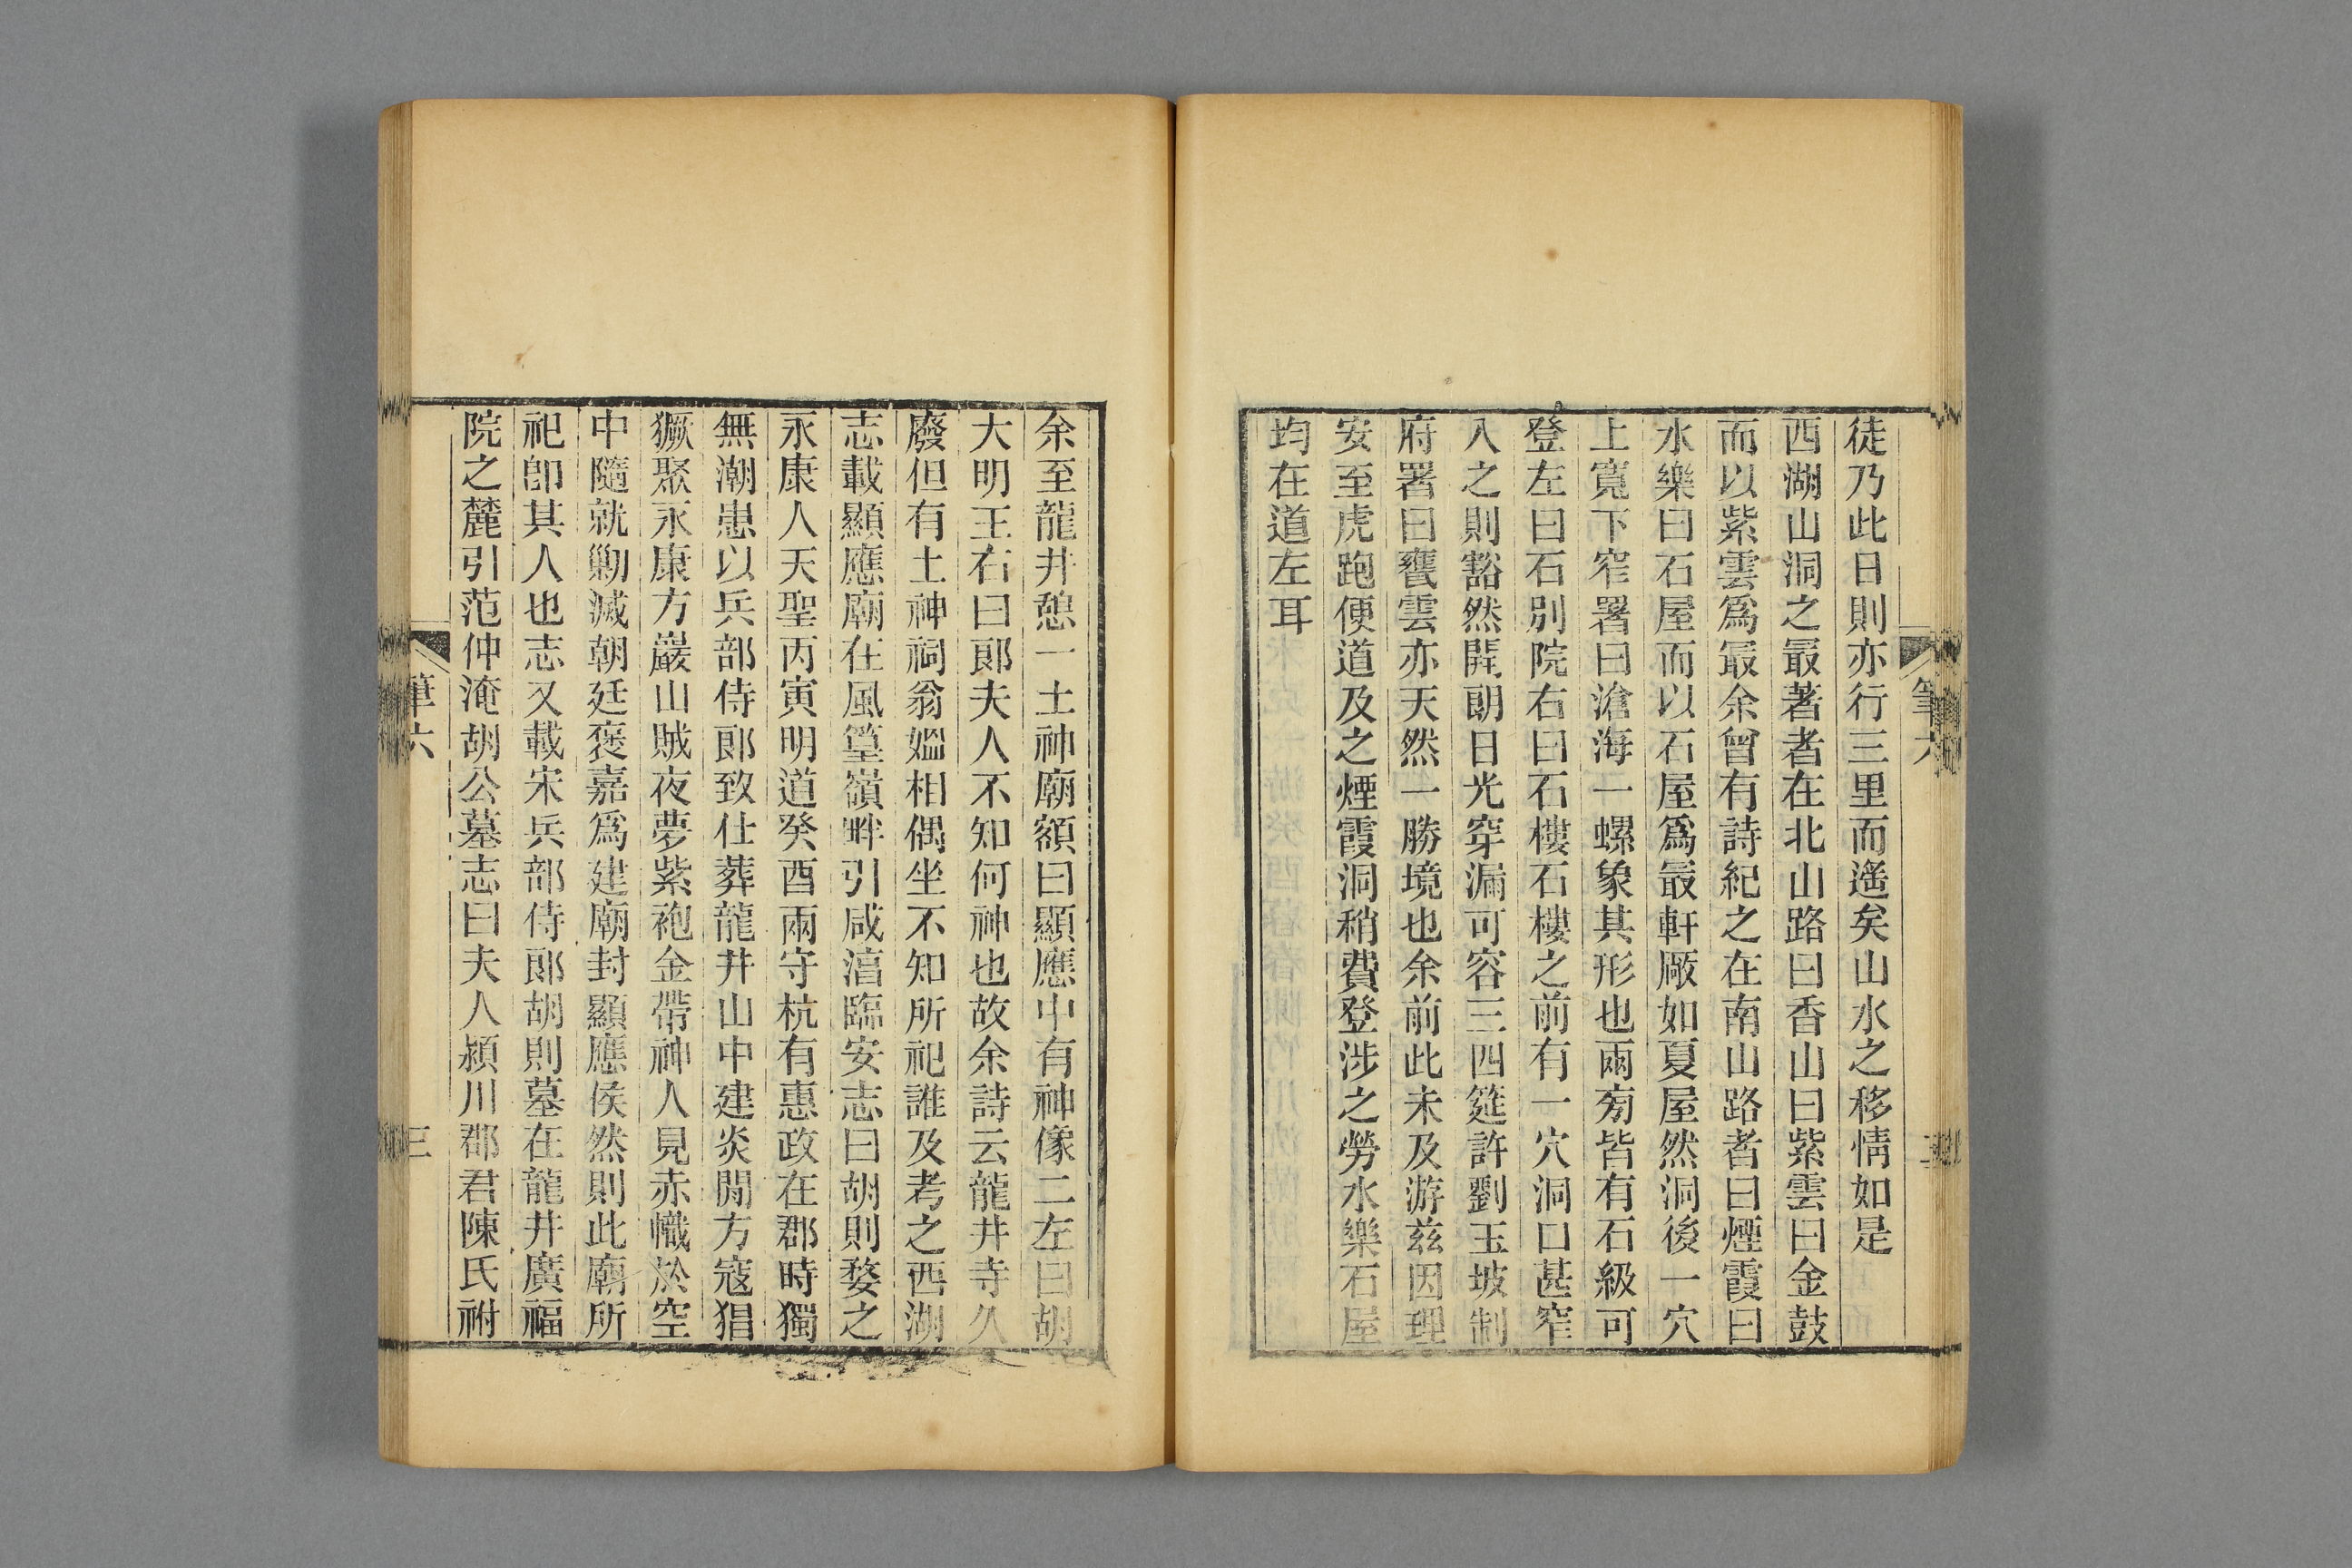 徒乃此日則亦行三里而遙矣山水之移情如是
西湖山洞之最著者在北山路曰香山曰紫雲曰金鼓
而以紫雲爲最余曾有詩紀之在南山路者曰煙霞曰
水樂曰石屋而以石屋爲最軒厰如夏屋然洞後一穴
上寬下窄署曰滄海一螺象其形也兩旁皆有石級可
登左曰石別院右曰石樓石樓之前有一穴洞口甚窄
入之則豁然開朗日光穿漏可容三四筵許劉玉坡制
府署曰甕雲亦天然一勝境也余前此未及游茲因理
安至虎跑便道及之煙霞洞稍費登涉之勞水樂石屋
均在道左耳
余至龍井憩一土神廟額曰顯應中有神像二左曰胡
大明王右曰郎夫人不知何神也故余詩云龍井寺久
廢但有土神祠翁媼相偶坐不知所祀誰及考之西湖
志載顯應廟在風篁嶺畔引咸淳臨安志曰胡則婺之
永康人天聖丙寅明道癸酉兩守杭有惠政在郡時獨
無潮患以兵部侍郎致仕葬龍井山中建炎閒方寇猖
獗聚永康方巖山賊夜夢紫袍金帶神人見赤幟於空
中隨就勦滅朝廷褒嘉爲建廟封顯應侯然則此廟所
祀卽其人也志又載宋兵部侍郎胡則墓在龍井廣福
院之麓引范仲淹胡公墓志曰夫人潁川郡君陳氏祔
筆六
三